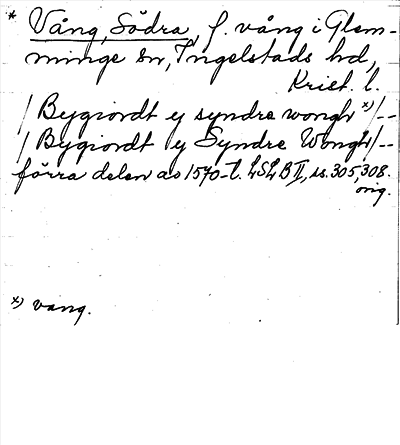 * Vång, Södra, f. vång i Glem-
minge sn, Ingelstads hd,
Krist. l.
/ Bygiordt ÿ syndre wongh x)/--
/ Bygiordt ÿ Syndre Wongh/--
förra delen av 1570-t. LSLB II, ss. 305, 308.
orig.
x) vang.